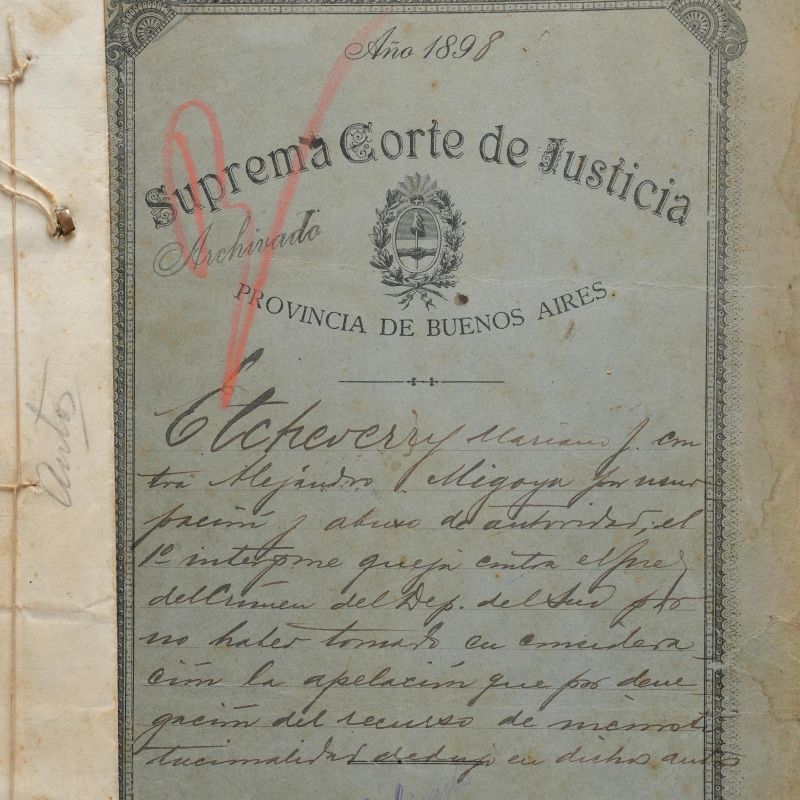 Año 1898
Suprema Corte de Justicia
Archivado
PROVINCIA DE BUENOS AIRES
Etcheverry Mariano J. con
tra Alejandro Migoya por usur
pación y abuso de autoridad, el
1º interpone queja contra el Juez
del Crímen del Dep. del Sud por
no haber tomado en considera
ción la apelación que por dene
gación del recurso de inconsti
tucionalidad dedujo en dichos autos
autos